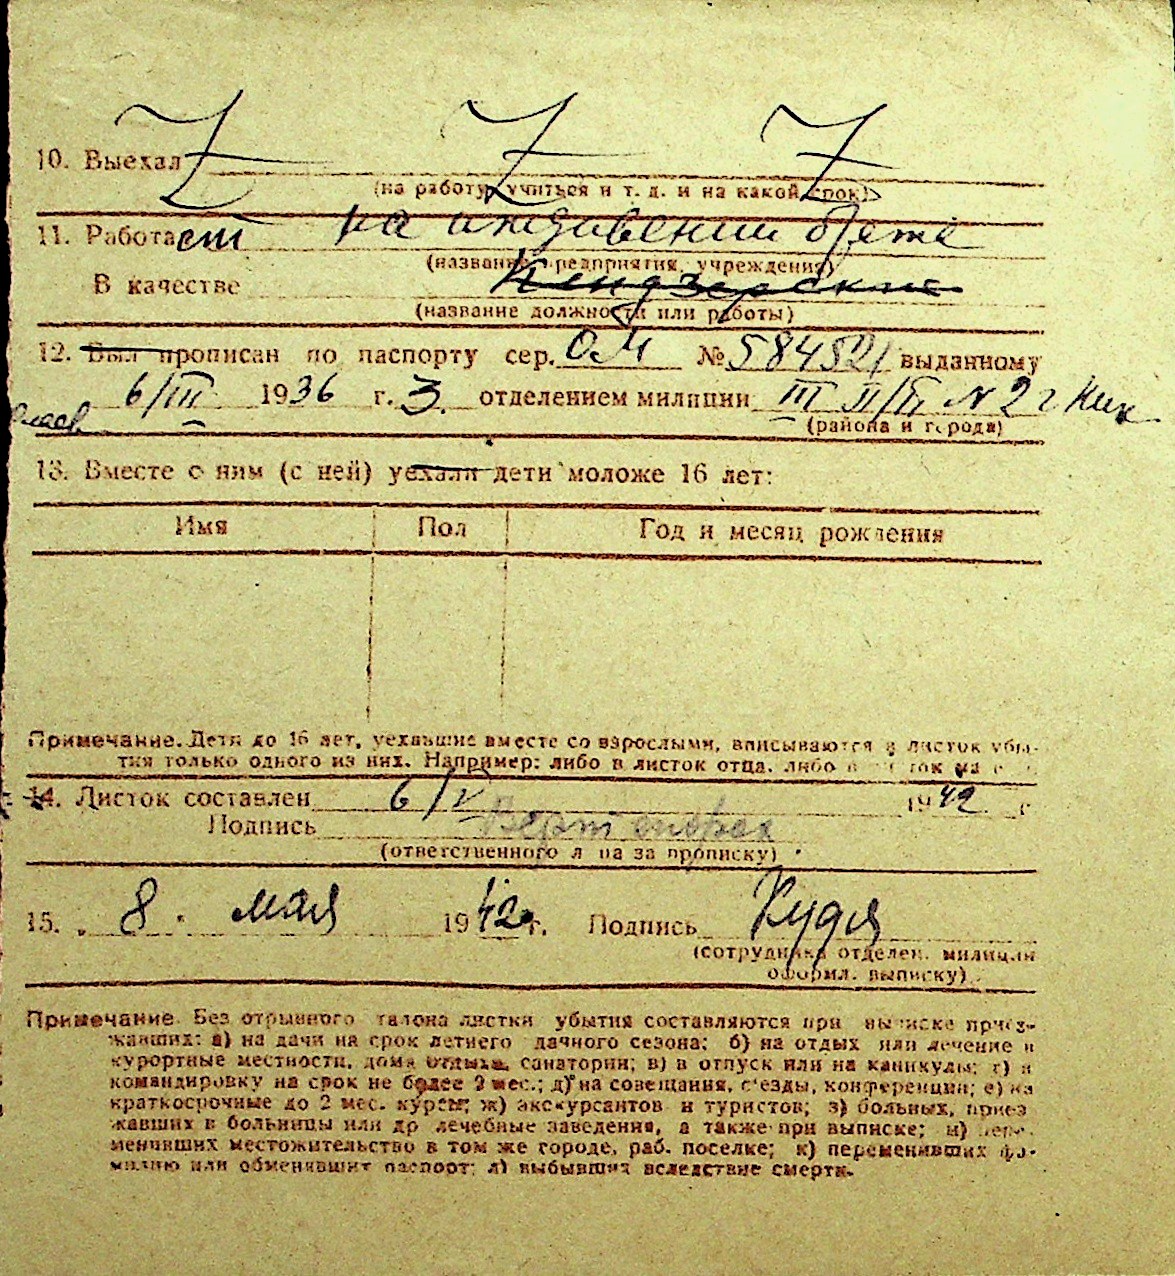 10. Выехал Z Z Z
(на работу, учиться и т. д. и на какой срок)
11. Работает на иждивении
(название предприятия, учреждения)
В качестве
(название должности или работы)
12. Был прописан по паспорту сер. ОМ № 584521 выданному
6/III 1936 г. 3. отделением милиции III П/П N 2 г
(района и города)
13. Вместе с ним (с ней) уехали дети моложе 16 лет:
Имя Пол Год и месяц рождения
Примечание. Дети до 16 лет, уехавшие вместе со взрослыми, вписываются в листок убы-
тия только одного из них. Например: либо в листок отца, либо в
14. Листок составлен 6/V 1942 г
Подпись
(ответственного лица за прописку)
15. " 8 " мая 1942 г. Подпись Кудя
(сотрудника отделен. милиции
оформл. выписку)
Примечание. Без отрывного талона листки убытия составляются при выписке приез-
жавших: а) на дачи на срок летнего дачного сезона; б) на отдых или лечение в
курортные местности, дома отдыха, санатории; в) в отпуск или на каникулы; г) в
командировку на срок не более 2 мес.; д) на совещания, с'езды, конференции; е) на
краткосрочные до 2 мес. курсы; ж) экскурсантов и туристов; з) больных, приез
жавших в больницы или др лечебные заведения, а также при выписке; и) пере-
менивших местожительство в том же городе, раб. поселке; к) переменивших фа-
милию или обменявших паспорт; л) выбывших вследствие смерти.